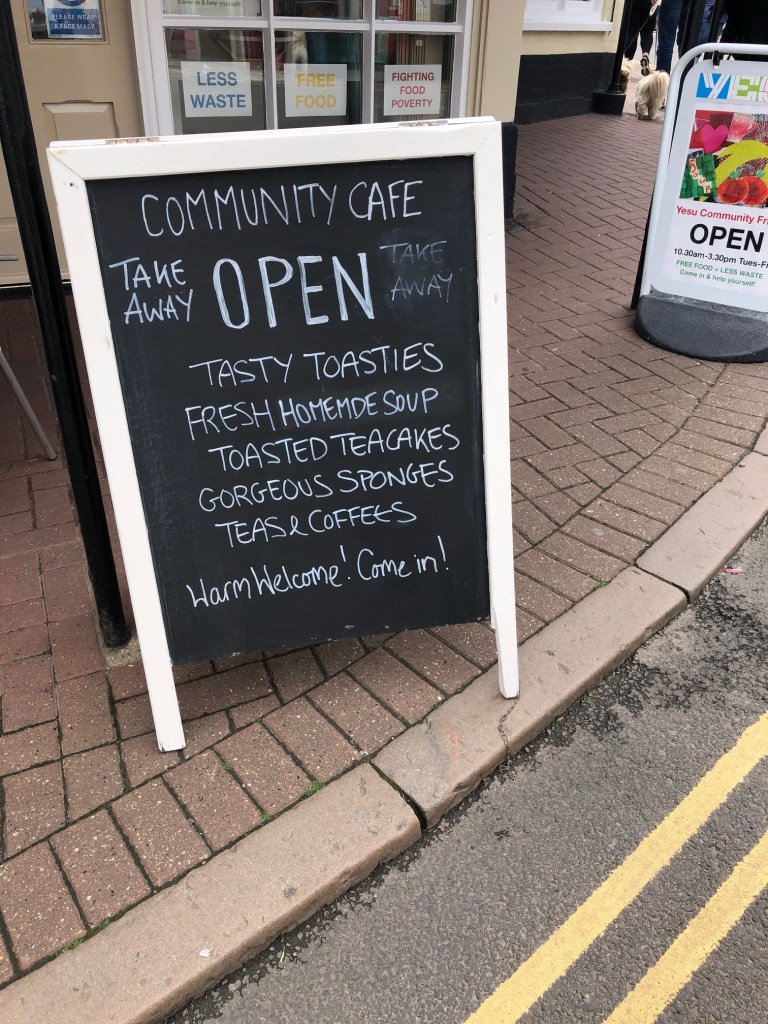 PLEASE WEAR
A FACE MASK
Come in & help yourself
LESS
WASTE
FREE
FOOD
FIGHTING
FOOD
POVERTY
COMMUNITY CAFE
TAKE
AWAY
OPEN
TAKE
AWAY
TASTY TOASTIES
FRESH HOMEMDE SOUP
TOASTED TEACAKES
GORGEOUS SPONGES
TEAS & COFFEES
Warm Welcome! Come in!
Yesu Community Fr
OPEN
10.30am-3.30pm Tues-Fr
FREE FOOD = LESS WASTE
Come in & help yourself!